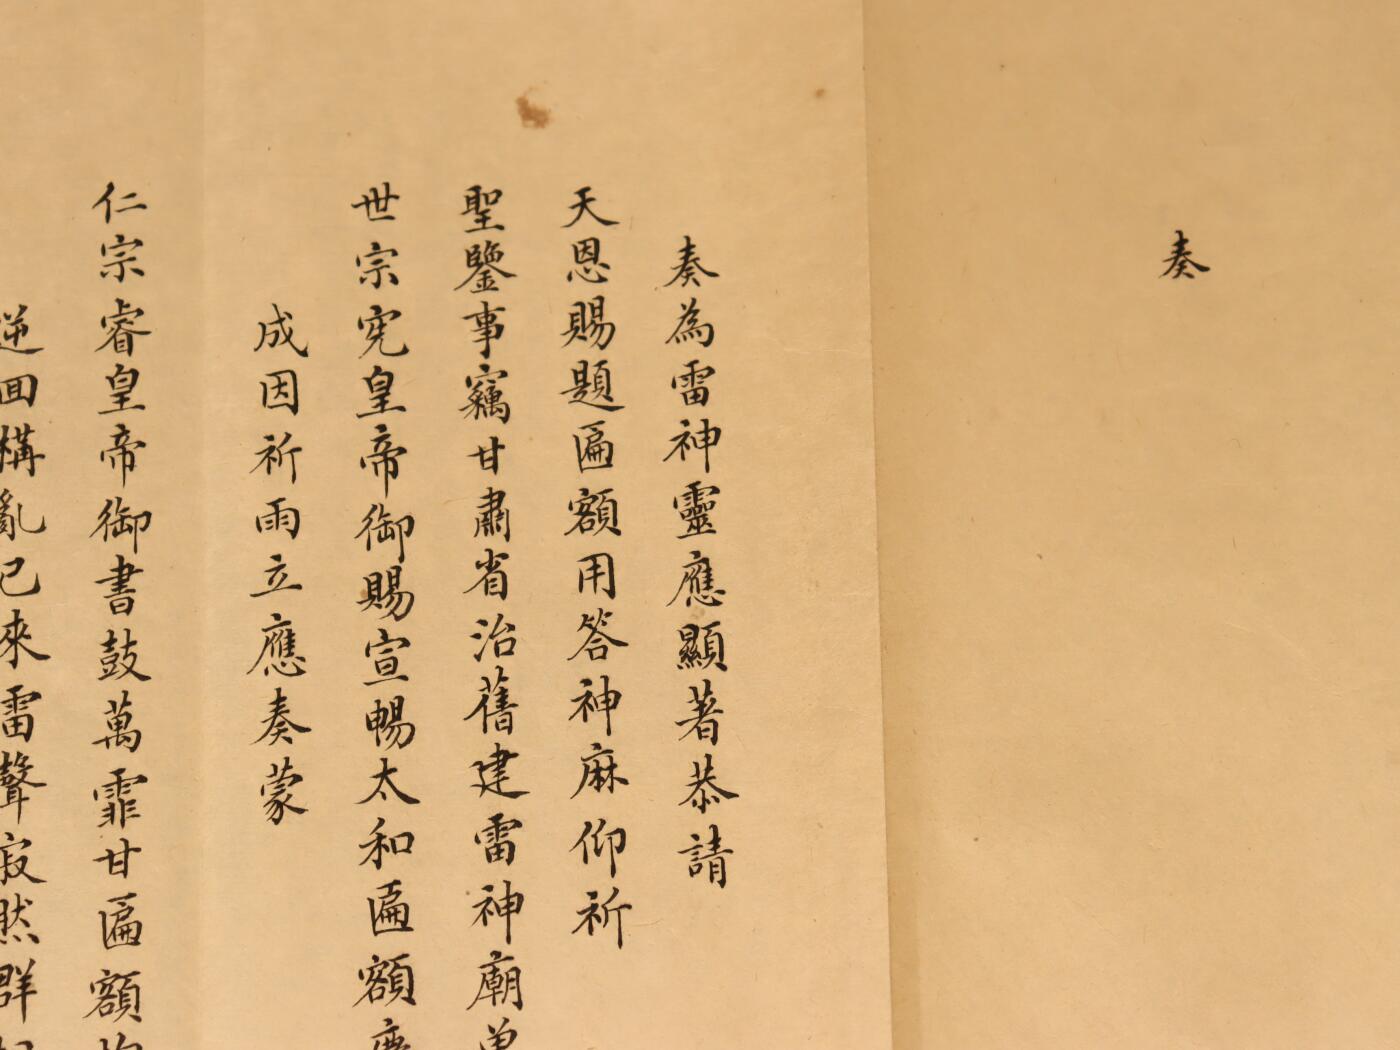 奏
奏為雷神靈應顯著恭請
天恩賜題匾額用答神庥仰祈
聖鑒事竊甘肅省治舊建雷神廟曾
世宗宪皇帝御賜宣暢太和匾額
成因祈雨立應奏蒙
仁宗睿皇帝御書鼓萬霏甘匾額
逆回構亂已來雷聲寂然群